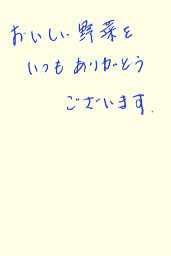 おいしい野菜を
いつもありがとう
ございます.